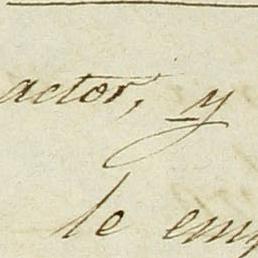 actor, y
le em